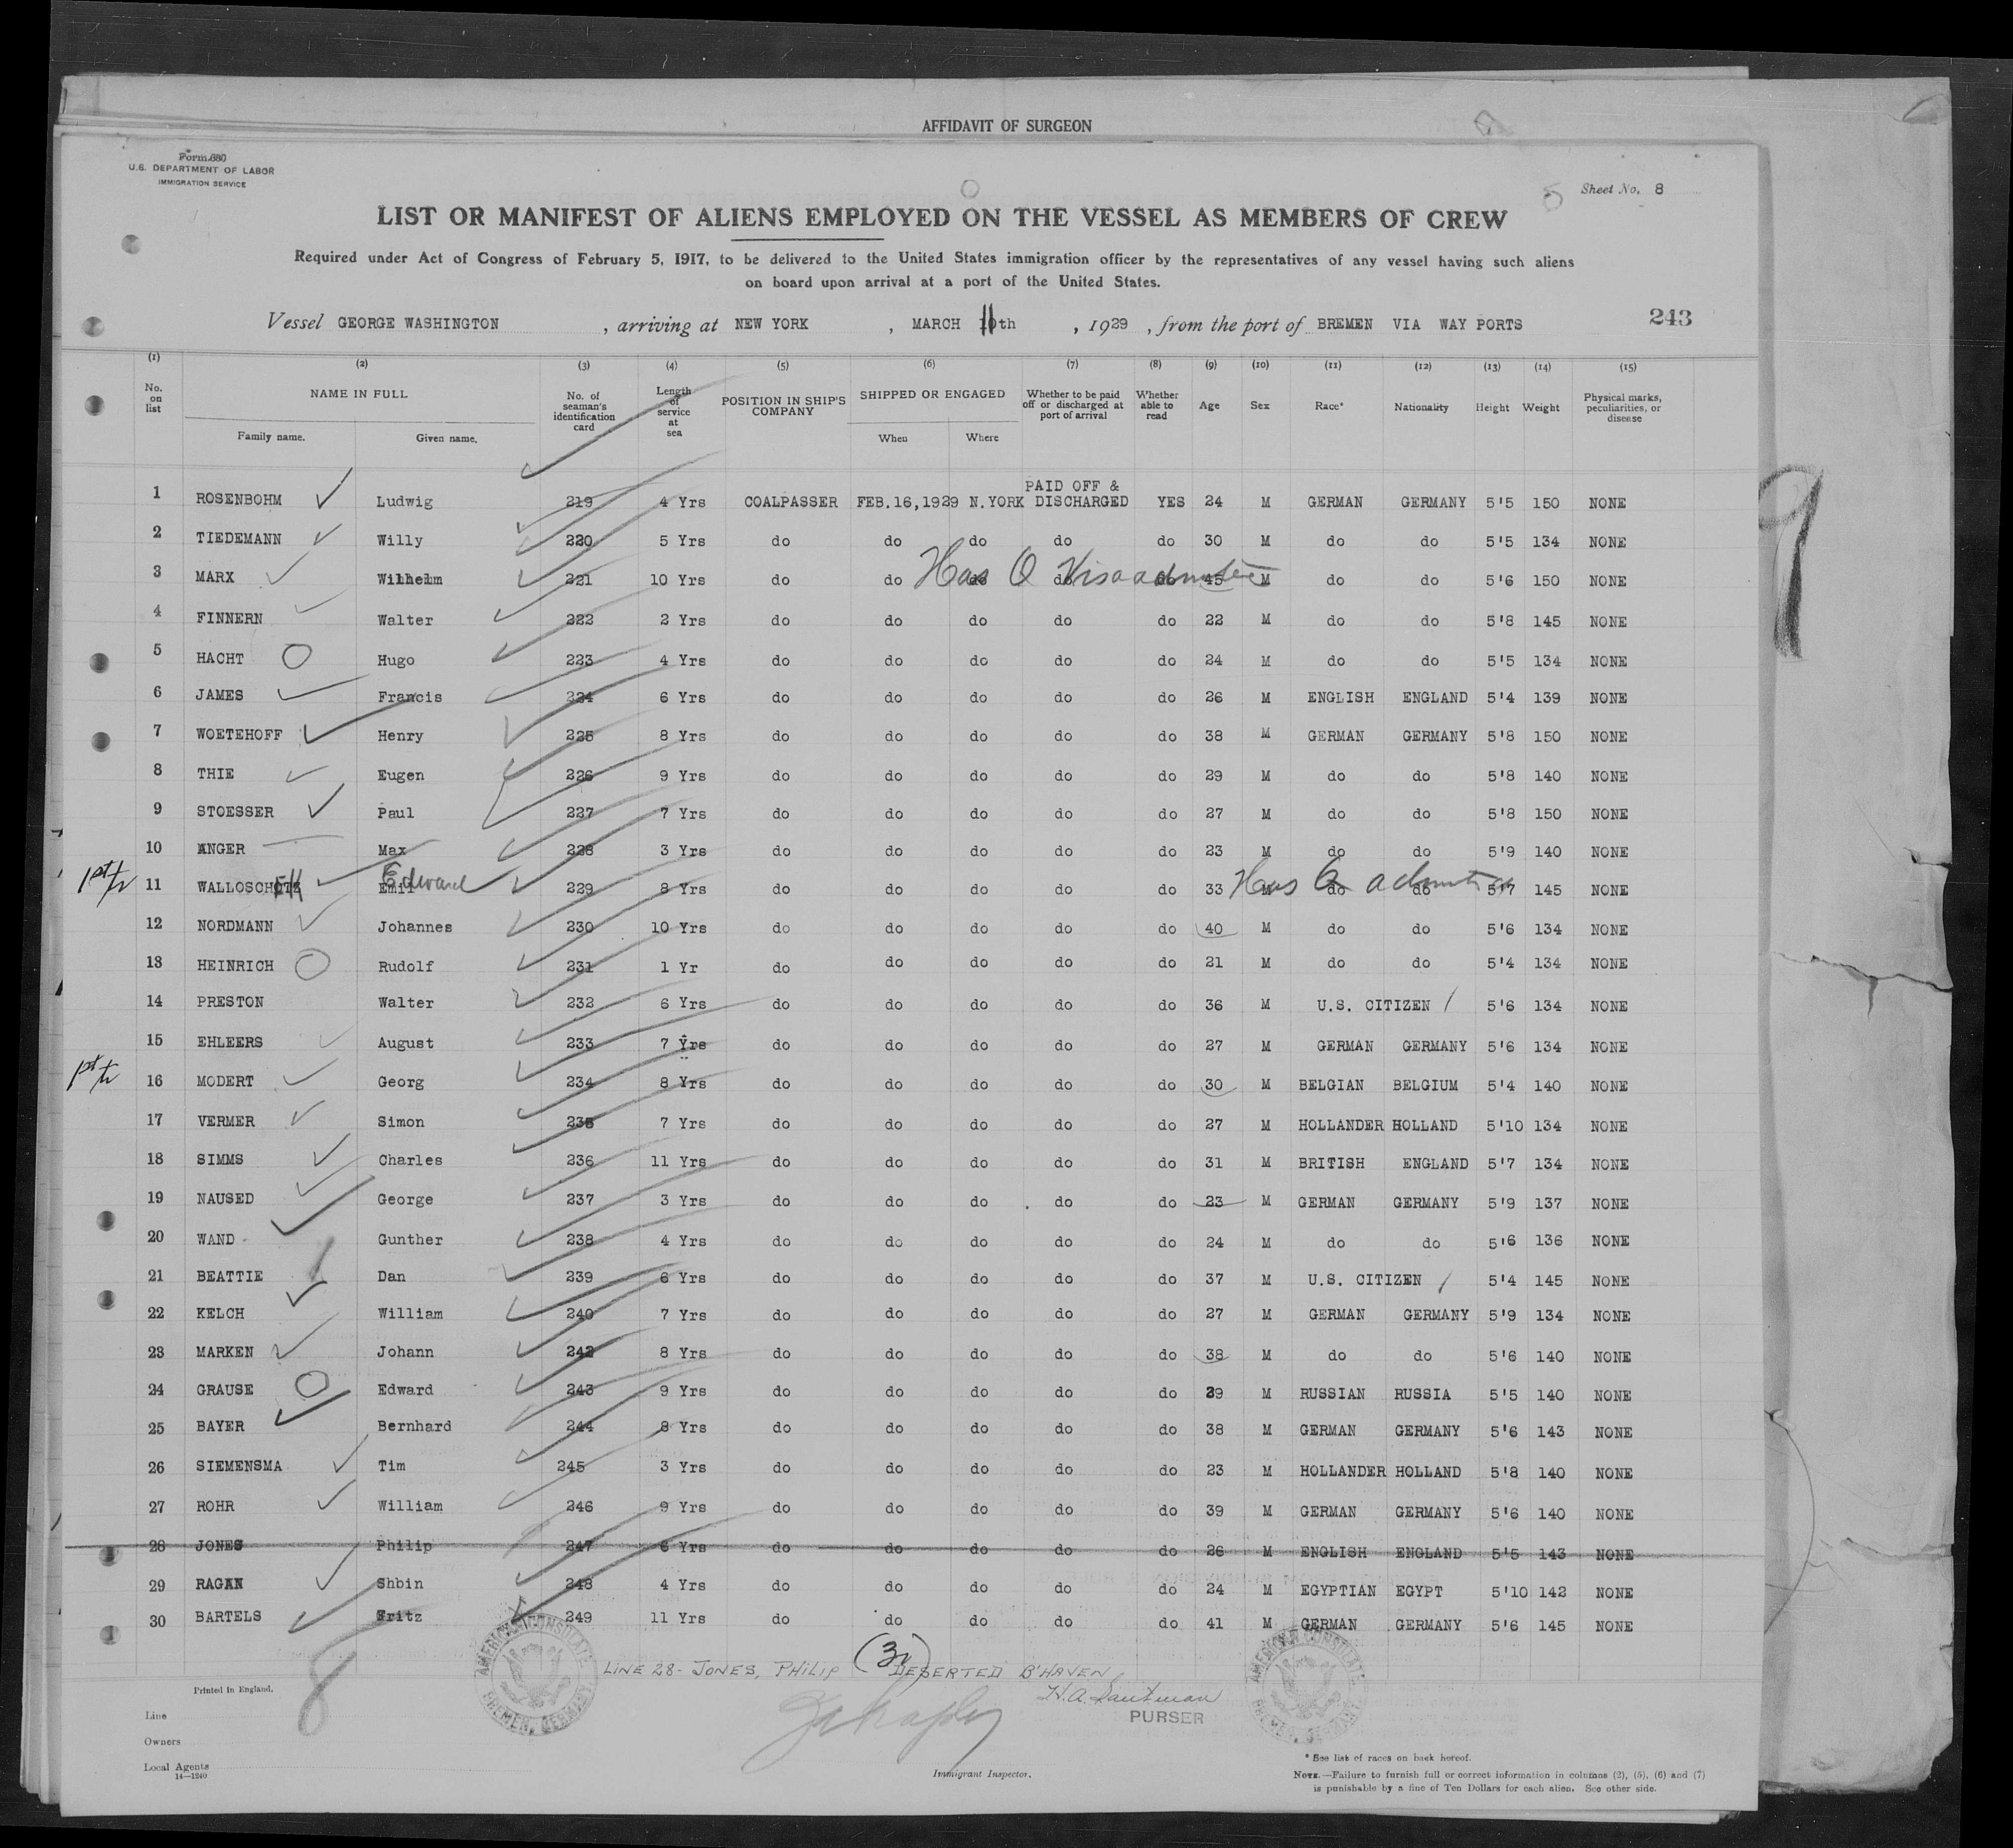 AFFIDAVIT OF SURGEON
Form 680
U.S. DEPARTMENT OF LABOR
IMMIGRATION SERVICE
Sheet No. 8
LIST OR MANIFEST OF ALIENS EMPLOYED ON THE VESSEL AS MEMBERS OF CREW
Required under Act of Congress of February 5, 1917, to be delivered to the United States immigration officer by the representatives of any vessel having such aliens
on board upon arrival at a port of the United States.
Vessel GEORGE WASHINGTON, arriving at NEW YORK, MARCH 11th, 1929, from the port of BREMEN VIA WAY PORTS 243
(1) (2) (3) (4) (5) (6) (7) (8) (9) (10) (11) (12) (13) (14) (15)
No. on list NAME IN FULL Family name. Given name. No. of seaman's identification card Length of service at sea POSITION IN SHIP'S COMPANY SHIPPED OR ENGAGED When Where Whether to be paid off or discharged at port of arrival Whether able to read Age Sex Race* Nationality Height Weight Physical marks, peculiarities, or disease
1 ROSENBOHM Ludwig 219 4 Yrs COALPASSER FEB.16,1929 N.YORK PAID OFF & DISCHARGED YES 24 M GERMAN GERMANY 5'5 150 NONE
2 TIEDEMANN Willy 220 5 Yrs do do do do do 30 M do do 5'5 134 NONE
3 MARX Wilhelm 221 10 Yrs do do do do do 45 M do do 5'6 150 NONE
Has Q Visa admitted
4 FINNERN Walter 222 2 Yrs do do do do do 22 M do do 5'8 145 NONE
5 HACHT Hugo 223 4 Yrs do do do do do 24 M do do 5'5 134 NONE
6 JAMES Francis 224 6 Yrs do do do do do 26 M ENGLISH ENGLAND 5'4 139 NONE
7 WOETEHOFF Henry 225 8 Yrs do do do do do 38 M GERMAN GERMANY 5'8 150 NONE
8 THIE Eugen 226 9 Yrs do do do do do 29 M do do 5'8 140 NONE
9 STOESSER Paul 227 7 Yrs do do do do do 27 M do do 5'8 150 NONE
10 ANGER Max 228 3 Yrs do do do do do 23 M do do 5'9 140 NONE
1st tr 11 WALLOSCHEK Emil Edward 229 8 Yrs do do do do do 33 M do do 5'7 145 NONE
Has Q admitted
12 NORDMANN Johannes 230 10 Yrs do do do do do 40 M do do 5'6 134 NONE
13 HEINRICH Rudolf 231 1 Yr do do do do do 21 M do do 5'4 134 NONE
14 PRESTON Walter 232 6 Yrs do do do do do 36 M U.S. CITIZEN 5'6 134 NONE
15 EHLEERS August 233 7 Yrs do do do do do 27 M GERMAN GERMANY 5'6 134 NONE
1st tr 16 MODERT Georg 234 8 Yrs do do do do do 30 M BELGIAN BELGIUM 5'4 140 NONE
17 VERMER Simon 235 7 Yrs do do do do do 27 M HOLLANDER HOLLAND 5'10 134 NONE
18 SIMMS Charles 236 11 Yrs do do do do do 31 M BRITISH ENGLAND 5'7 134 NONE
19 NAUSED George 237 3 Yrs do do do do do 23 M GERMAN GERMANY 5'9 137 NONE
20 WAND Gunther 238 4 Yrs do do do do do 24 M do do 5'6 136 NONE
21 BEATTIE Dan 239 6 Yrs do do do do do 37 M U.S. CITIZEN 5'4 145 NONE
22 KELCH William 240 7 Yrs do do do do do 27 M GERMAN GERMANY 5'9 134 NONE
23 MARKEN Johann 242 8 Yrs do do do do do 38 M do do 5'6 140 NONE
24 GRAUSE Edward 243 9 Yrs do do do do do 39 M RUSSIAN RUSSIA 5'5 140 NONE
25 BAYER Bernhard 244 8 Yrs do do do do do 38 M GERMAN GERMANY 5'6 143 NONE
26 SIEMENSMA Tim 245 3 Yrs do do do do do 23 M HOLLANDER HOLLAND 5'8 140 NONE
27 ROHR William 246 9 Yrs do do do do do 39 M GERMAN GERMANY 5'6 140 NONE
28 JONES Philip 247 6 Yrs do do do do do 26 M ENGLISH ENGLAND 5'5 143 NONE
29 RAGAN Shbin 248 4 Yrs do do do do do 24 M EGYPTIAN EGYPT 5'10 142 NONE
30 BARTELS Fritz 249 11 Yrs do do do do do 41 M GERMAN GERMANY 5'6 145 NONE
LINE 28 - JONES, PHILIP DESERTED B'HAVEN
AMERICAN CONSULATE BREMEN, GERMANY
AMERICAN CONSULATE BREMEN, GERMANY
8
PURSER
Printed in England.
Line
Owners
Local Agents
14—1240
Immigrant Inspector.
* See list of races on back hereof.
NOTE.—Failure to furnish full or correct information in columns (2), (5), (6) and (7)
is punishable by a fine of Ten Dollars for each alien. See other side.